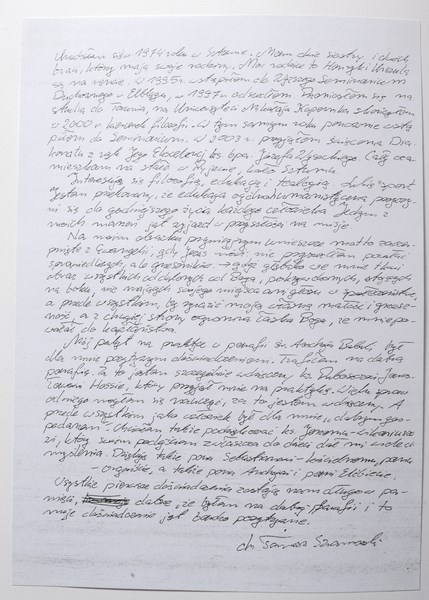 Urodziłem się w 1974 roku w Sztumie. Mam dwie siostry i dwóch
braci, którzy mają swoje rodziny. Moi rodzice to Henryk i Urszula
są na rencie. w 1995 r. wstąpiłem do Wyższego Seminarium
Duchownego w Elblągu, w 1997 odszedłem. Przeniosłem się na
studia do Torunia, na Uniwersytet Mikołaja Kopernika skończyłem
w 2000 r kierunek filozofii. W tym samym roku ponownie wstą
piłem do Seminarium. W 2003 r przyjąłem święcenia Dia
konatu z rąk Jego Ekscelencji ks. bpa. Józefa Wysockiego. Cały czas
mieszkam na stałe w koło Sztumu.
Interesuję się filozofią, edukacją i teologią. Lubię sport
Jestem przekonany, że edukacja ogólnohumanistyczna
ni się do godniejszego życia każdego człowieka. Jednym z
moich marzeń jest wyjazd w przyszłości na misje.
Na moim obrazku prymicyjnym umieszczę motto zacze
rpnięte z Ewangelii, gdy Jezus mówi: nie przyszedłem powołać
sprawiedliwych, ale grzeszników. głęboko we mnie tkwi
obraz wszystkich odległych od Boga, stojących
na boku, nie mających swojego miejsca
a przede wszystkim, by wyrazić moją własną małość i grzesz
ność, a z drugiej strony ogromna łaska Boga, że mnie po-
wołał do kapłaństwa.
Mój pobyt na praktyce w parafii św. Andrzeja Boboli, był
dla mnie pozytywnym doświadczeniem. Trafiłem na dobrą
parafię. Za to jestem szczególnie wdzięczny ks. Proboszczowi Janu-
który przyjął mnie na praktykę. Wielu spraw
od niego mogłem się nauczyć, za to jestem wdzięczny. A
przede wszystkim jako człowiek był dla mnie „dobrym gos-
podarzem". Chciałem także podziękować ks.
który swoim podejściem zwłaszcza do dzieci dał mi wiele do
myślenia. Dziękuję także panu Sebastianowi - kościelnemu, panu
- organiście, a także panu Andrzejowi i pani Elżbiecie.
Wszystkie pierwsze doświadczenia zostają nam długo w pa-
mięci, dobrze, że byłem na dobrej parafii i to
moje doświadczenie jest bardzo pozytywne.
dn Tomasz